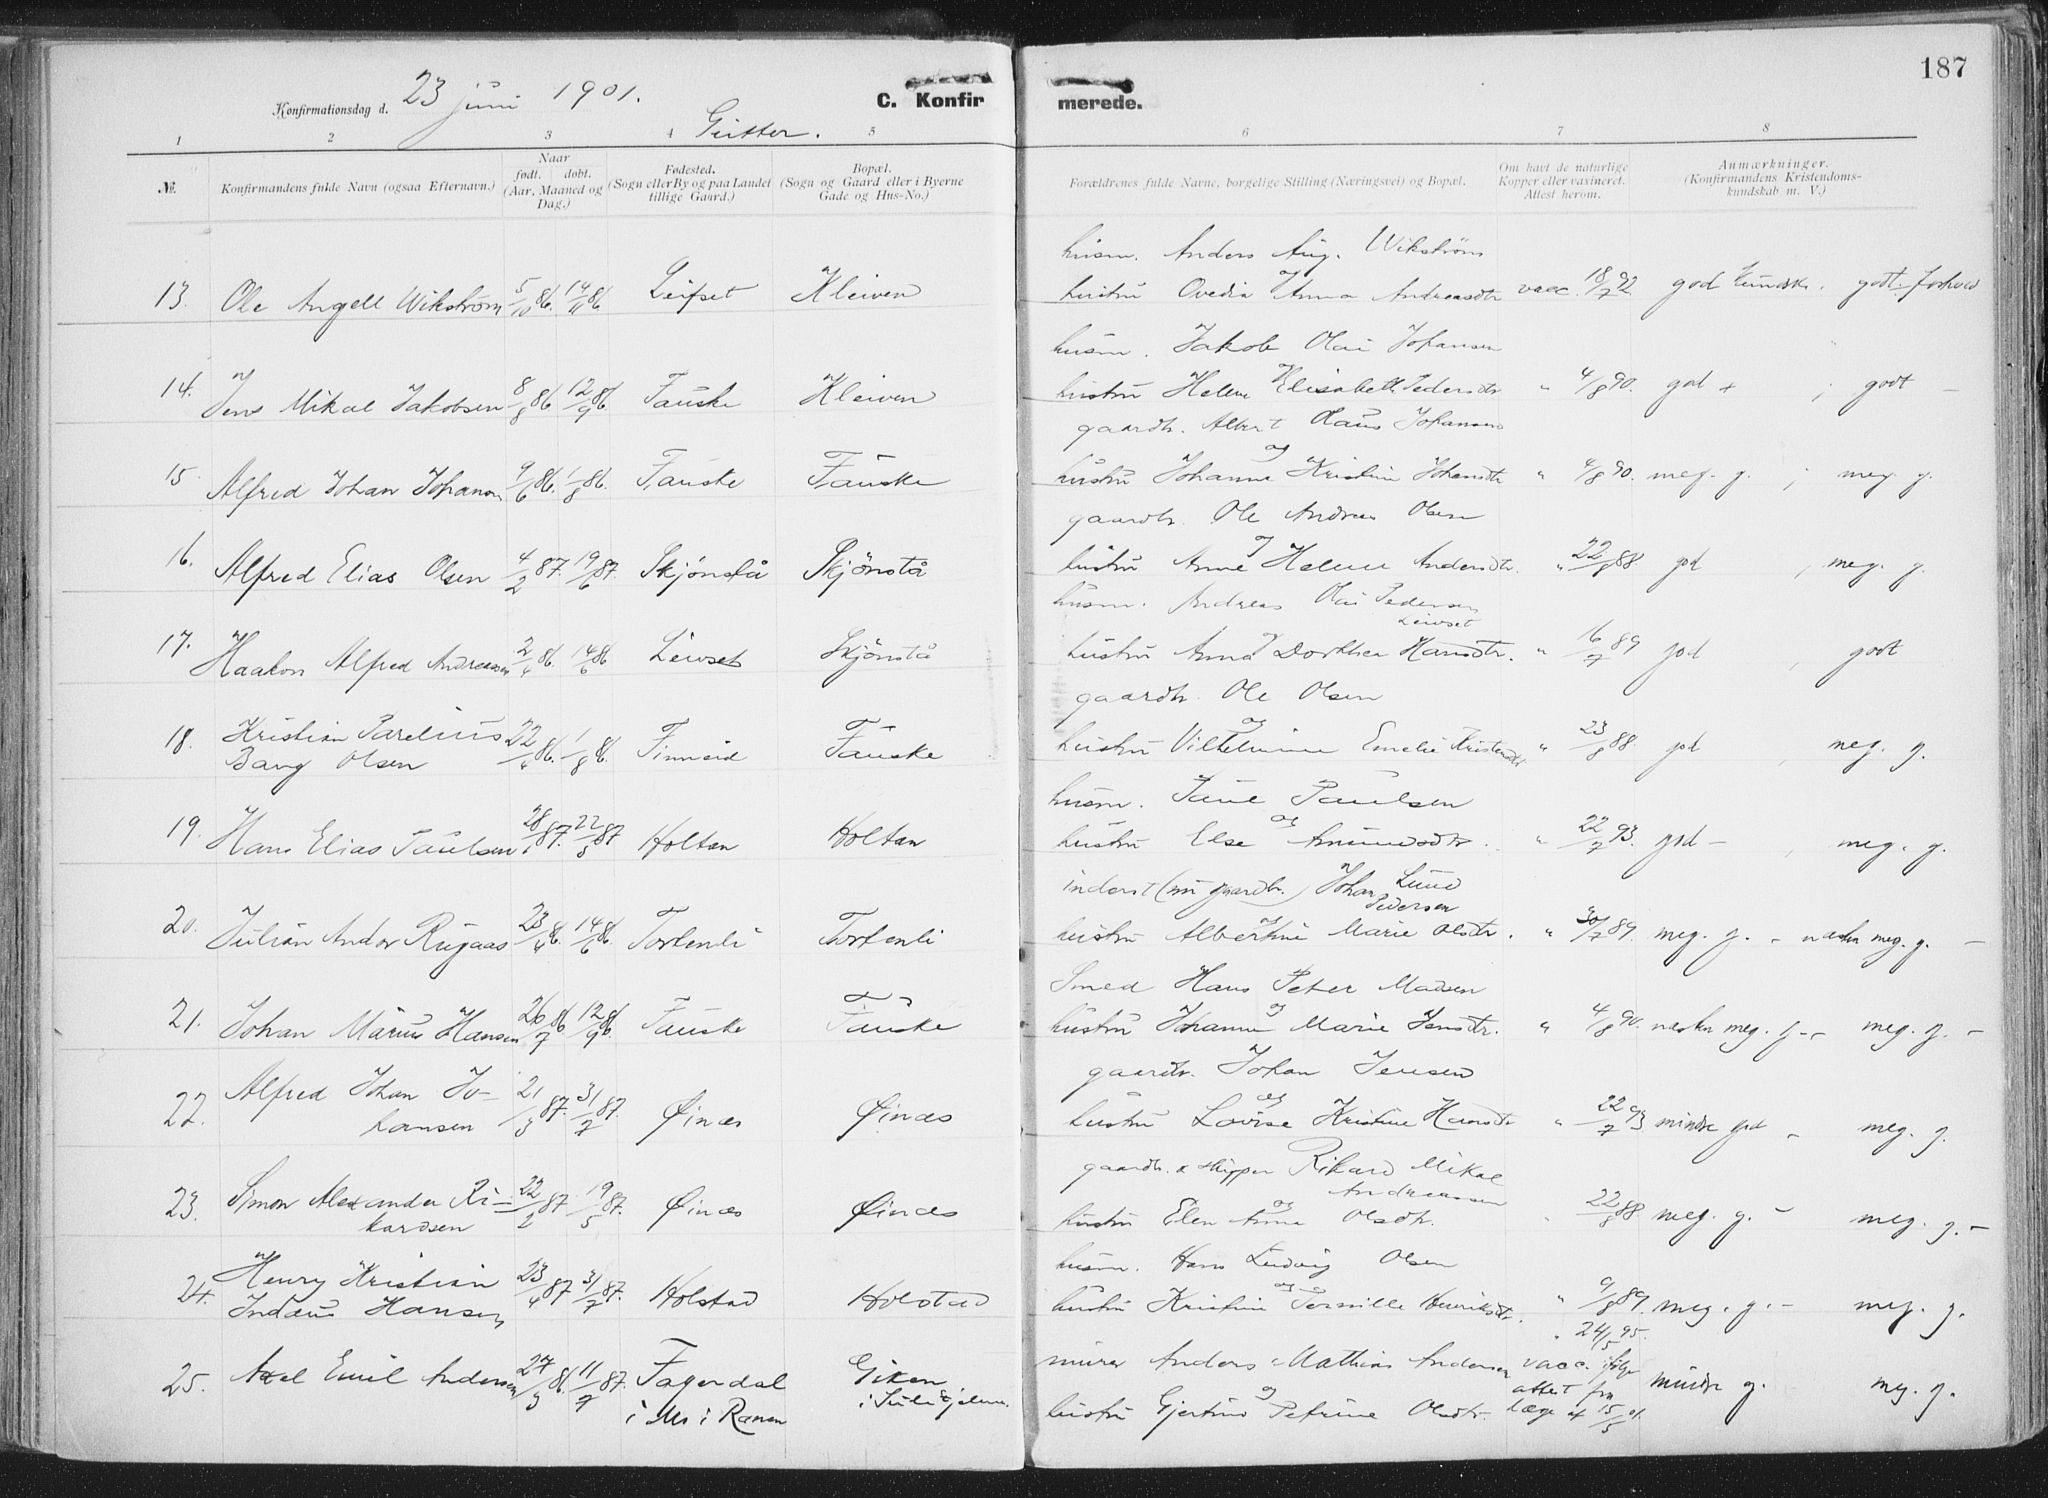 187
Konfirmationsdag d. 23 juni 1901.
C. Konfirmerede.
Gutter.
1 2 3 4 5 6 7 8
№.
Konfirmandens fulde Navn (ogsaa Efternavn.)
Naar født. døbt. (Aar, Maaned og Dag.)
Fødested. (Sogn eller By og paa Landet tillige Gaard.)
Bopæl. (Sogn og Gaard eller i Byerne Gade og Hus-No.)
Forældrenes fulde Navne, borgelige Stilling (Næringsvei) og Bopæl.
Om havt de naturlige Kopper eller vaxineret. Attest herom.
Anmærkninger. (Konfirmandens Kristendomskundskab m. V.)
husm. Anders Aug. Wikström
13. Ole Angell Wikström 5/10 86. 14/11 86. Leifset Kleiven og hustru Ovedia Anna Andreasdtr vacc. 18/7 92. god kundsk. godt forhold
husm. Jakob Olai Johansen
14. Jens Mikal Jakobsen 8/8 86 12/9 86 Fauske Kleiven og hustru Helene Elisabeth Pedersdtr " 4/8 90. god ; godt -
gaardbr. Albert Klaus Johansen
15 Alfred Johan Johansen 9/6 86. 1/8 86. Fauske Fauske og hustru Johanna Kristine Johansdtr " 4/8 90. meg. g. ; meg. g.
gaardbr. Ole Andreas Olsen
16. Alfred Elias Olsen 4/2 87. 19/6 87. Skjönstå Skjönstå og hustru Anne Helene Andersdtr. " 22/8 88 god , meg. g.
husm. Andreas Olai Pedersen
Leivset
17. Haakon Alfred Andreassen 2/4 86. 14/6 86 Leivset Skjönstå og hustru Anna Dorthea Hansdtr. " 16/7 89 god , godt
gaardbr. Ole Olsen
18. Kristian Parelius 22/4 86. 1/8 86. Finneid Fauske og hustru Vilhelmine Emelie Kristensdtr " 23/8 88. god , meg. g.
Bang Olsen
husm. Paul Paulsen
19. Hans Elias Paulsen 28/1 87. 22/5 87 Holtan Holtan og hustru Else Amundsdtr. " 22/7 93. god - , meg. g.
inderst (nu gaardbr.) Johan Lund
Pedersen
20. Julian Andor Rugaas 23/4 86. 14/6 86. Tortenli Tortenli og hustru Albertine Marie Olsdtr. " 30/7 89. meg. g. - næsten meg. g. -
Smed Hans Peter Madsen
21. Johan Marius Hansen 26/7 86. 12/9 86. Fauske Fauske og hustru Johanna Marie Jensdtr. " 4/8 90. næsten meg. g - - meg. g. -
gaardbr. Johan Jensen
22. Alfred Johan Jo- 21/3 87. 31/7 87. Øinæs Øinæs og hustru Lovise Kristine Hansdtr " 22/7 93 mindre god - meg. g.
hansen
gaardbr. & skipper Rikard Mikal
Andreassen
23. Simon Alexander Ri- 22/2 87. 19/5 87. Øinæs Øinæs og hustru Elen Anna Olsdtr. " 22/8 88. meg. g. - meg. g. -
kardsen
husm. Hans Ludvig Olsen
24. Henry Kristian 23/4 87 31/7 87. Holstad Holstad og hustru Kristine Pernille Henriksdtr. " 9/8 89. meg. g. - meg. g.
Indaus Hansen
" 24/5 95.
25. Axel Emil Andersen 27/3 86. 11/7 87. Fagerdal Giken murer Anders Mathias Andersen vacc. ifølge mindre g. meg. g.
i Mo i Ranen i Sulitjelma. og hustru Gjertine Petrine Olsdtr. attest fra læge af 15/5 01.